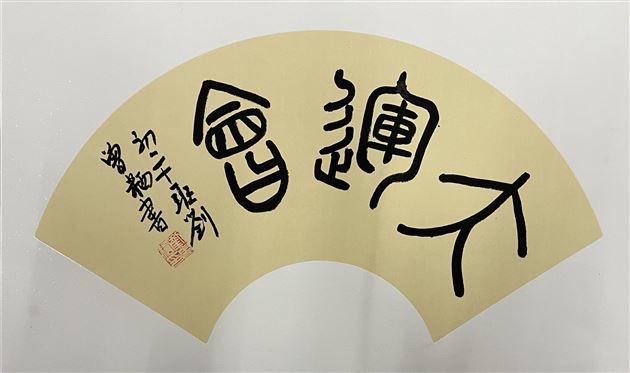 大運會
初二十班劉
曾書